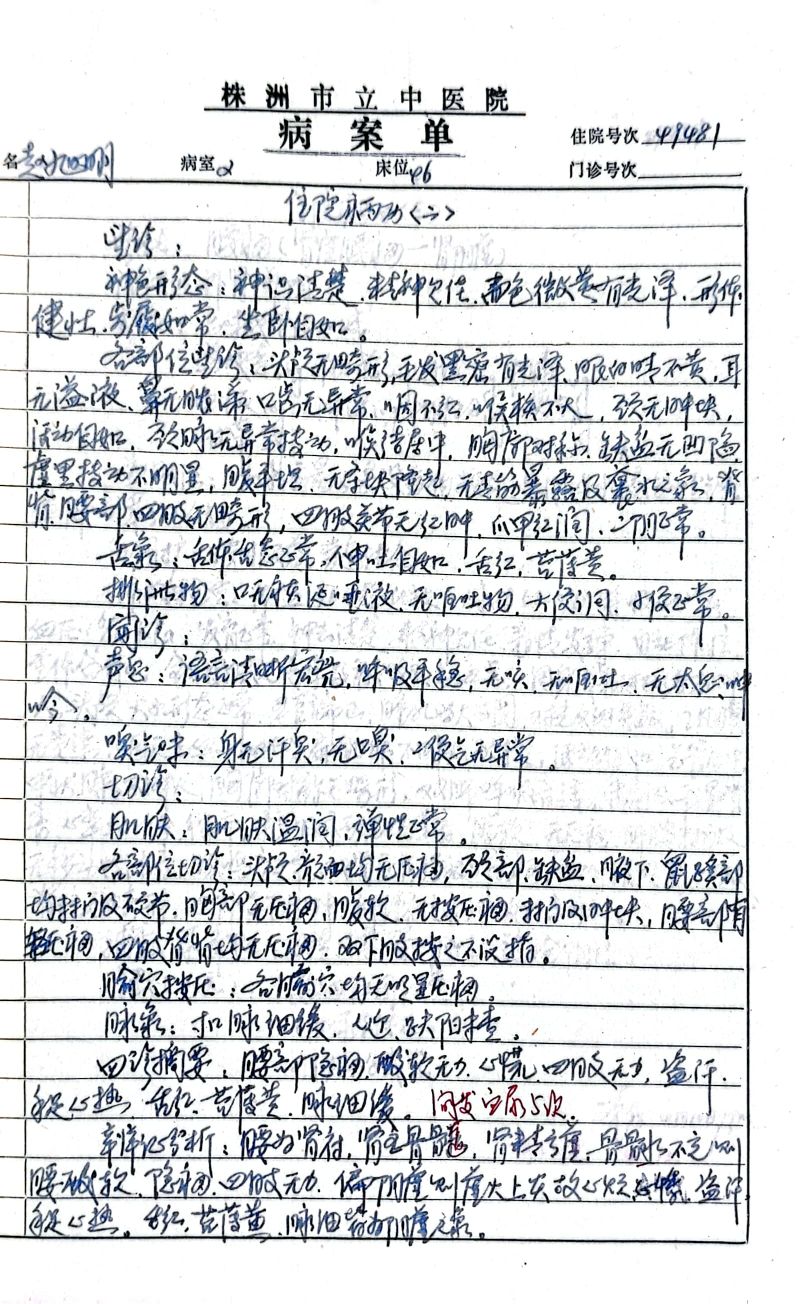 株洲市立中医院
病案单
住院号次 49481
名 病室2 床位46 门诊号次
住院病历<二>
望诊：
神色形态：神识清楚、精神欠佳、面色微黄有光泽、形体
健壮、步履如常、坐卧自如。
各部位望诊：头颅无畸形，毛发黑密有光泽、眼白睛不黄，耳
无溢液、鼻无脓涕、口齿无异常，咽不红，喉核不大，颈无肿块，
活动自如，颈脉无异常搏动，喉结居中，胸廓对称、缺盆无凹陷
虚里搏动不明显，腹平坦、无条块隆起，无青筋暴露及囊水之象，背
脊、腰部、四肢无畸形，四肢关节无红肿，爪甲红润、二阴正常。
舌象：舌体舌态正常、伸吐自如、舌红，苔薄黄。
排泄物：口无痰涎唾液、无呕吐物、大便调、小便正常。
闻诊：
声息：语言清晰宏亮，呼吸平稳，无咳、无呕吐、无太息、呻
吟。
嗅气味：身无汗臭，无口臭，二便气无异常。
切诊：
肌肤：肌肤温润，弹性正常。
各部位切诊：头颅、颜面均无压痛，颈部、缺盆、腋下、鼠蹊部
均未扪及硬节、胸部无压痛，腹软、无按压痛、未扪及肿块，腰部有
轻压痛，四肢背脊均无压痛、双下肢按之不没指。
腧穴按压：各腧穴均无明显压痛。
脉象：寸口脉细缓、人迎、趺阳未查。
四诊摘要：腰部隐痛、酸软无力、心慌、四肢无力，盗汗、
手足心热、舌红、苔薄黄、脉细缓。间发白尿5次。
辛详记分析：腰为肾府，肾主骨髓，肾精亏虚、骨髓不充则
腰酸软、隐痛、四肢无力、偏阴虚则虚火上炎故心烦、盗汗
手足心热。舌红、苔薄黄、脉细皆为阴虚之象。